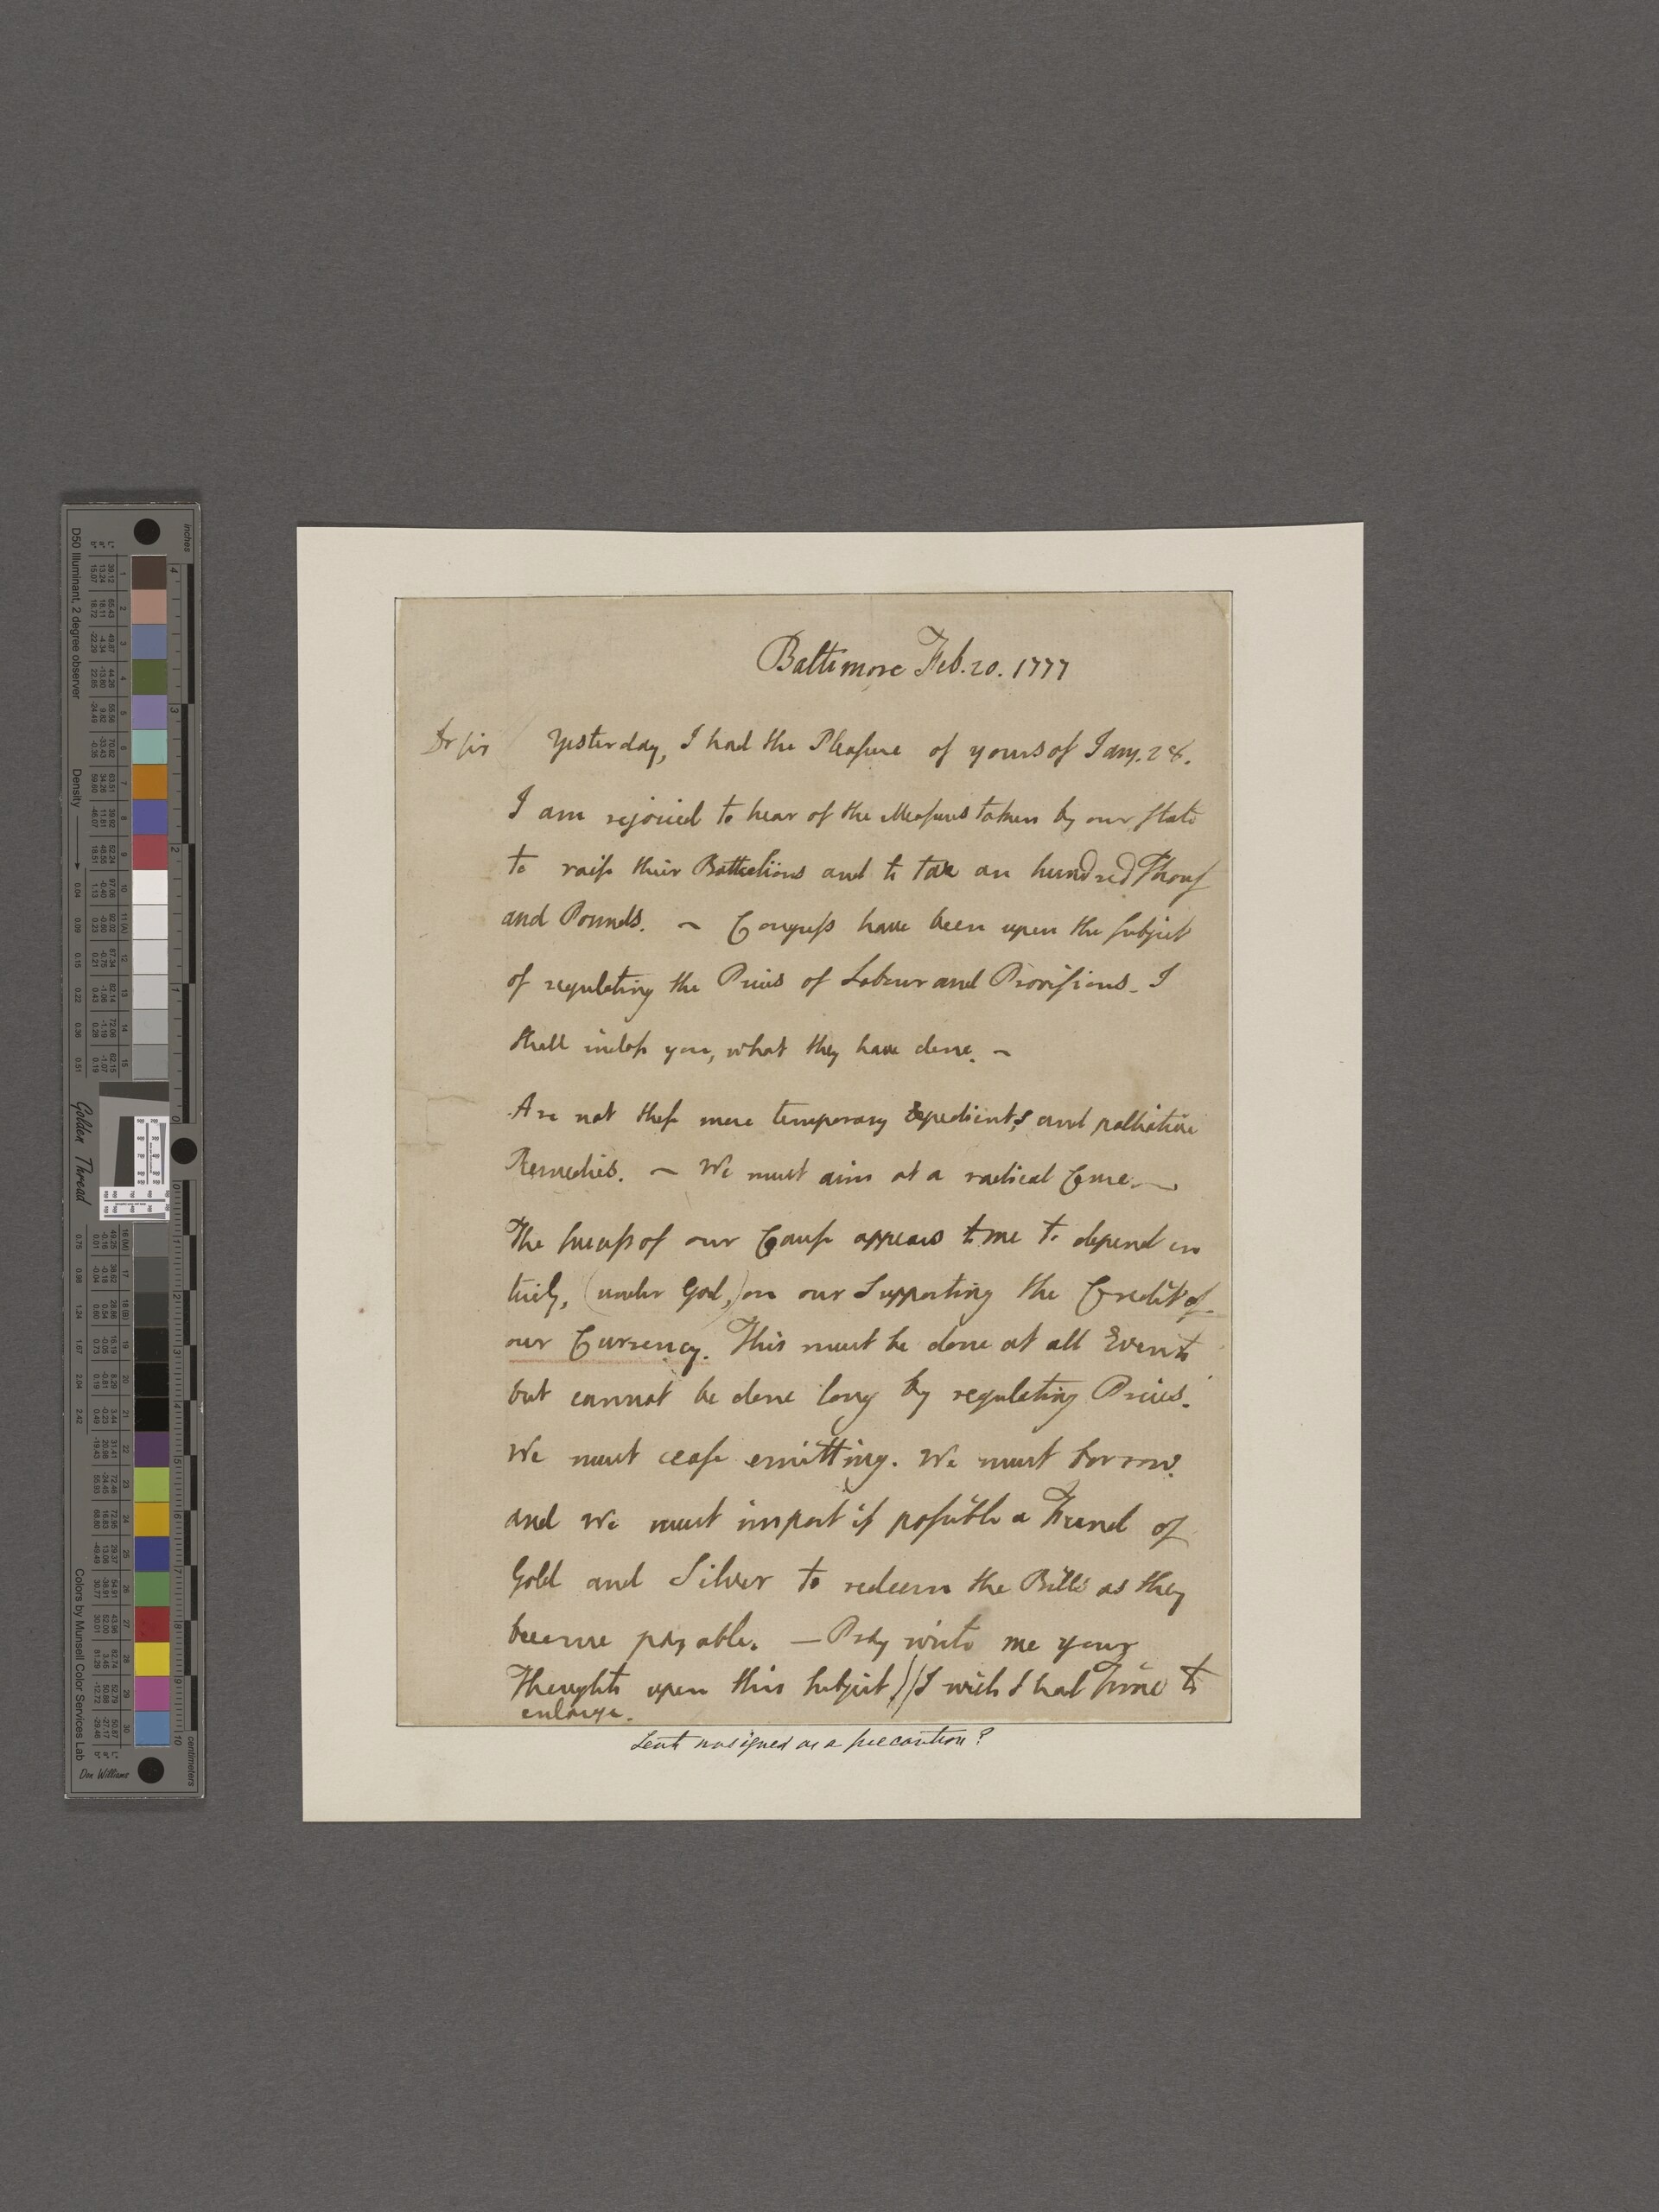 Baltimore Feb. 20. 1777
Dr sir Yesterday, I had the Pleasure of yours of Jany. 28.
I am rejoiced to hear of the Measures taken by our State
to raise their Battalions and to tax an hundred Thous
and Pounds. — Congress have been upon the subject
of regulating the Prices of Labour and Provisions. I
shall inclose you, what they have done. —
Are not these mere temporary Expedients, and palliative
Remedies. — We must aim at a radical Cure —
The success of our Cause appears to me to depend en
tirely, (under God,) on our Supporting the Credit of
our Currency. This must be done at all Events
but cannot be done long by regulating Prices.
We must cease emitting. We must borrow.
and we must import if possible a Fund of
Gold and Silver to redeem the Bills as they
become payable. — Pray write me your
Thoughts upon this subject // I wish I had Time to
enlarge.
Sent unsigned as a precaution?
inches
D50 Illuminant, 2 degree observer
Density
Golden Thread
Colors by Munsell Color Services Lab
Don Williams
centimeters